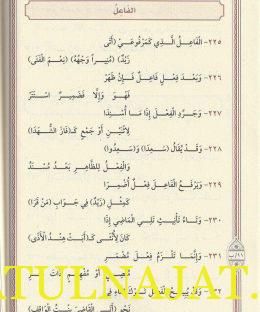 الفاعل
٢٢٥- الْفَاعِلُ الَّذِي كَمَرْفُوعَيْ (أَتَى
زَيْدٌ) (مُنِيرًا وَجْهُهُ) (نِعْمَ الْفَتَى)
٢٢٦- وَبَعْدَ فِعْلٍ فَاعِلٌ فَإِنْ ظَهَرْ
فَهْوَ وَإِلَّا فَضَمِيرٌ اسْتَتَرْ
٢٢٧- وَجَرِّدِ الْفِعْلَ إِذَا مَا أُسْنِدَا
لِاثْنَيْنِ أَوْ جَمْعٍ كَـ(فَازَ الشُّهَدَا)
٢٢٨- وَقَدْ يُقَالُ (سَعِدَا) وَ(سَعِدُوا)
وَالْفِعْلُ لِلظَّاهِرِ بَعْدُ مُسْنَدُ
٢٢٩- وَيَرْفَعُ الْفَاعِلَ فِعْلٌ أُضْمِرَا
كَمِثْلِ (زَيْدٌ) فِي جَوَابِ (مَنْ قَرَا)
٢٣٠- وَتَاءُ تَأْنِيثٍ تَلِي الْمَاضِي إِذَا
كَانَ لِأُنْثَى كَـ(أَبَتْ هِنْدُ الْأَذَى)
٢٣١- وَإِنَّمَا تَلْزَمُ فِعْلَ مُضْمَرِ
مُتَّصِلٍ أَوْ مُفْهِمٍ ذَاتَ حِرِ
٢٣٢- وَقَدْ يُبِيحُ الْفَصْلُ تَرْكَ التَّاءِ فِي
نَحْوِ (أَتَى الْقَاضِيَ بِنْتُ الْوَاقِفِ)
ATULNAJAT.